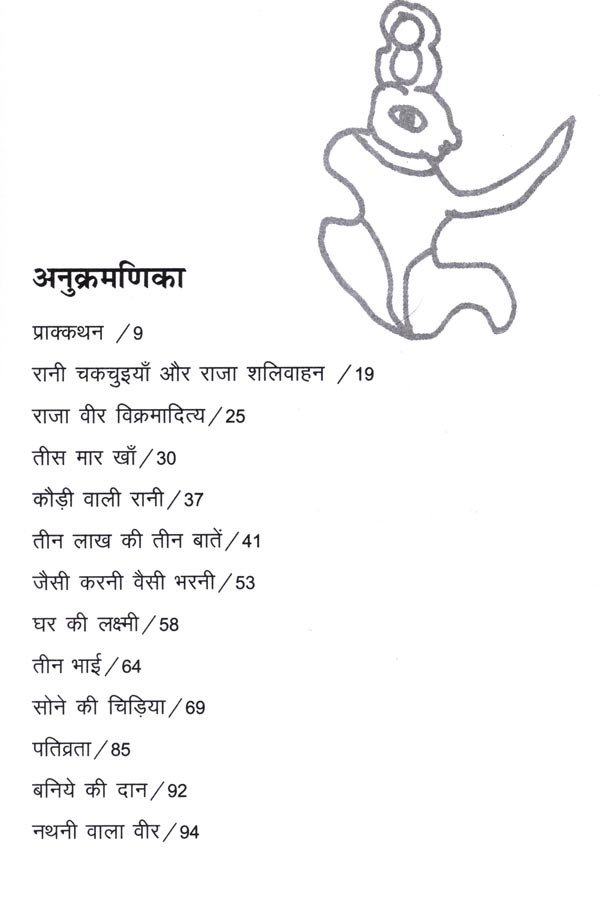 अनुक्रमणिका
प्राक्कथन /9
रानी चकचुइयाँ और राजा शलिवाहन /19
राजा वीर विक्रमादित्य/25
तीस मार खाँ/30
कौड़ी वाली रानी/37
तीन लाख की तीन बातें/41
जैसी करनी वैसी भरनी/53
घर की लक्ष्मी/58
तीन भाई/64
सोने की चिड़िया/69
पतिव्रता/85
बनिये की दान/92
नथनी वाला वीर/94